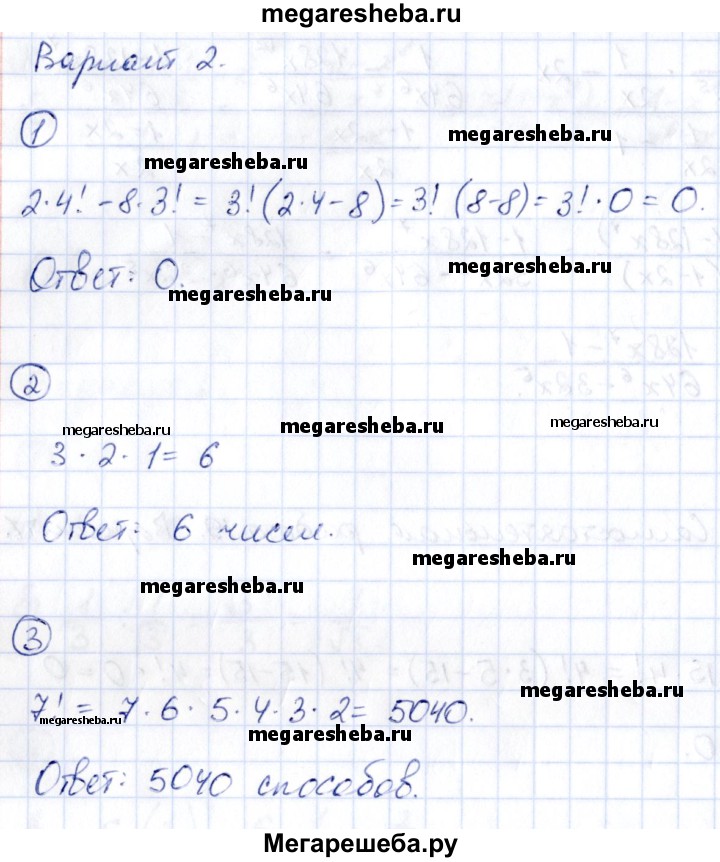 megaresheba.ru
Вариант 2.
1
megaresheba.ru
megaresheba.ru
2·4! - 8·3! = 3! (2·4 - 8) = 3! (8-8) = 3! · 0 = 0.
megaresheba.ru
Ответ: 0.
megaresheba.ru
2
megaresheba.ru
megaresheba.ru
megaresheba.ru
3 · 2 · 1 = 6
Ответ: 6 чисел.
megaresheba.ru
megaresheba.ru
3
megaresheba.ru
7! = 7 · 6 · 5 · 4 · 3 · 2 = 5040.
megaresheba.ru
megaresheba.ru
Ответ: 5040 способов.
Мегарешеба.ру